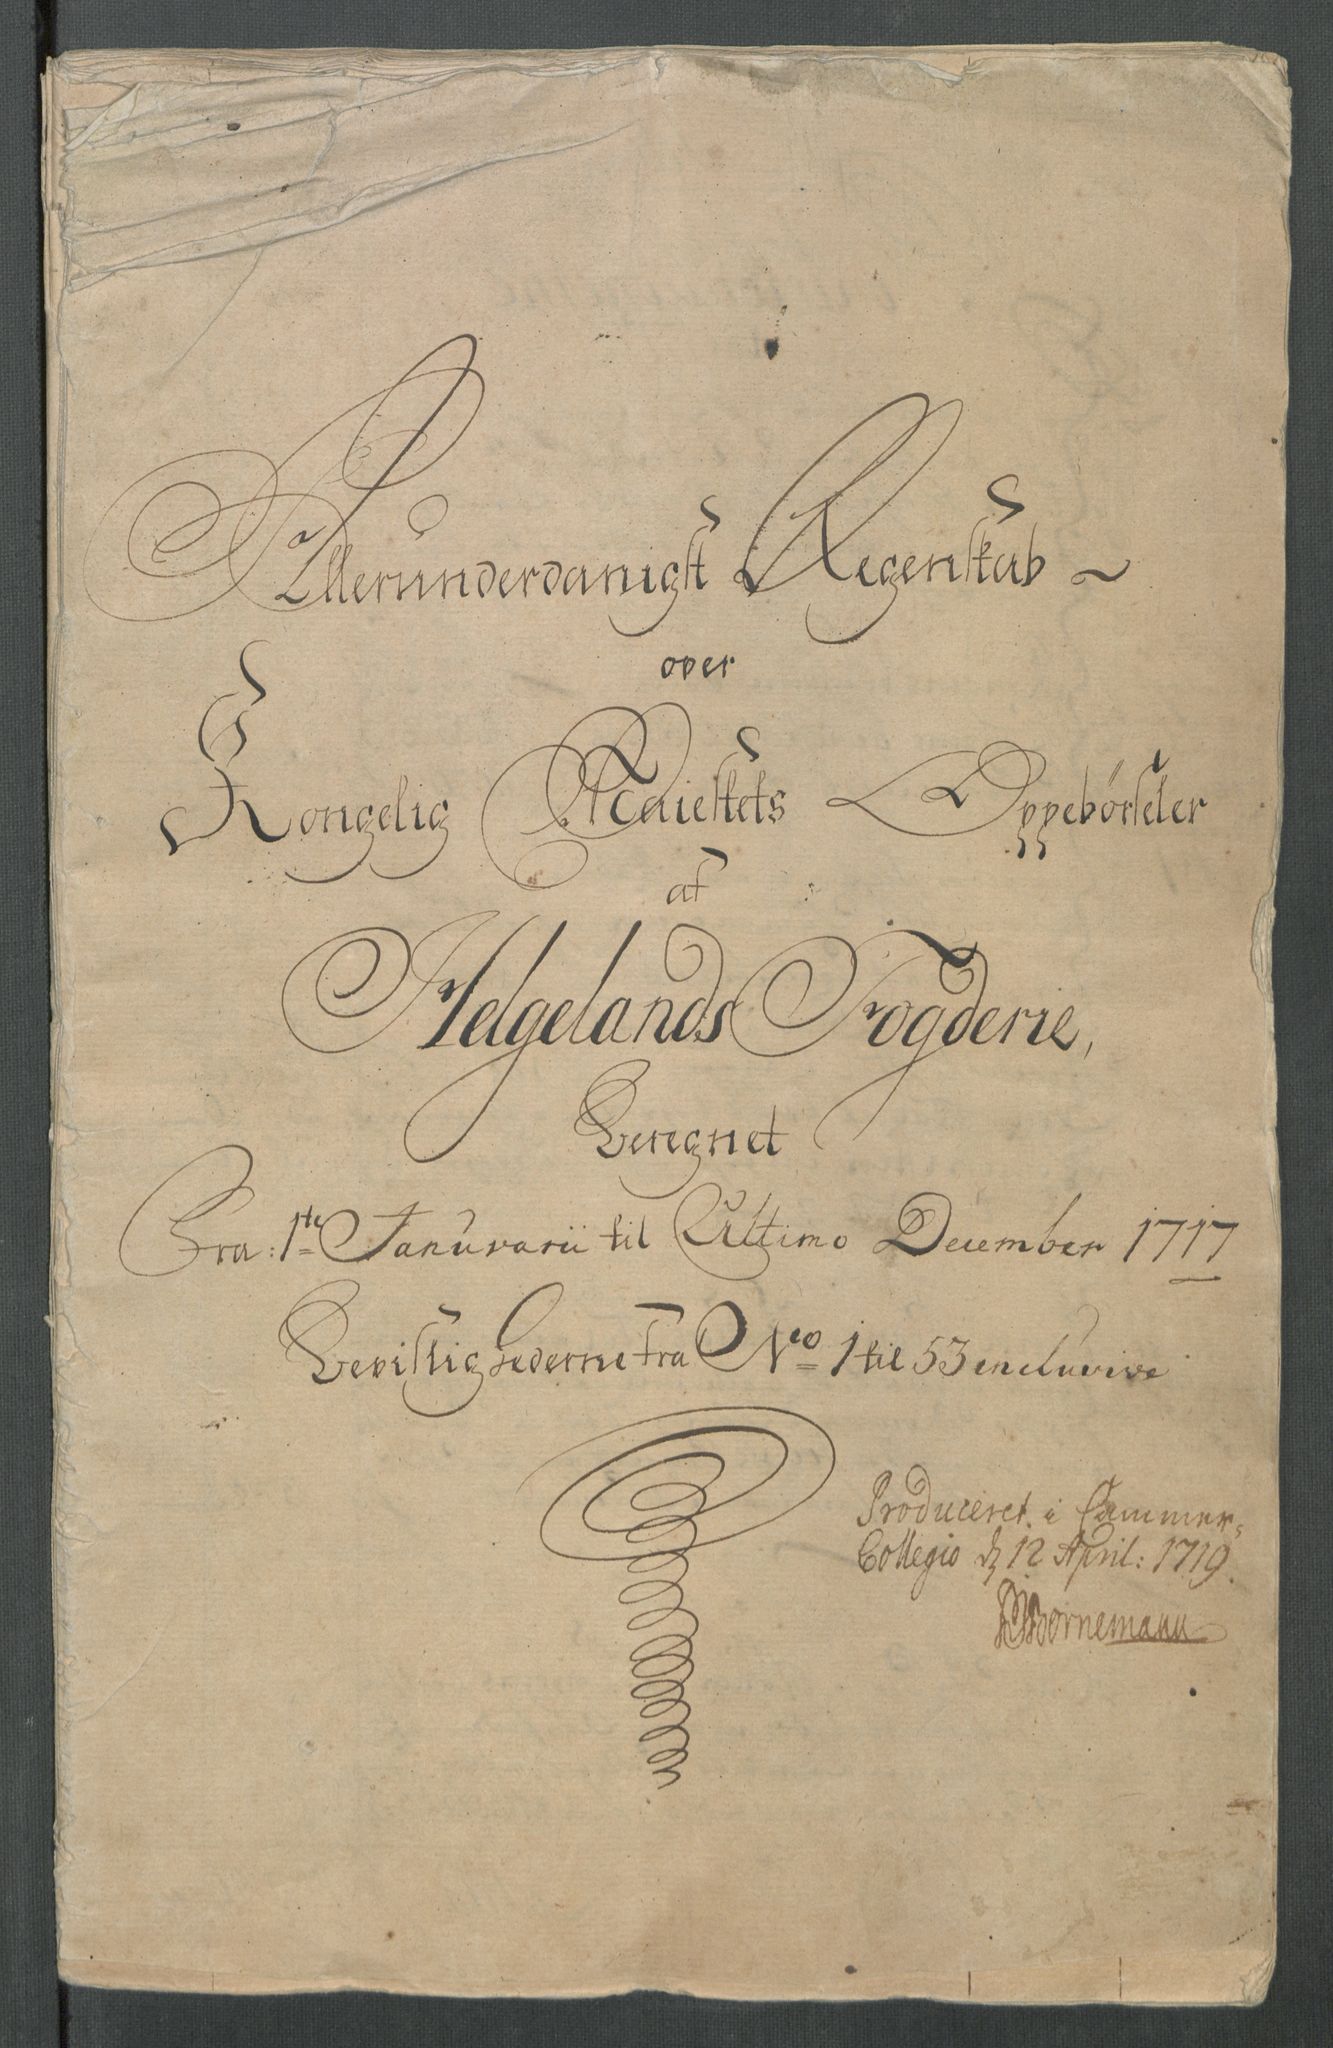 Allerunderdanigst Regenskab
over
Kongelig Maiestets Oppebörseler
af
Helgelands Fogderie,
Beregnet
Fra: 1te Januvarii til Ultimo December 1717
Bevislighederne fra No 1 til 53 incluvive
Produceret i Cammer-
Collegio d 12 April: 1719.
Bornemann